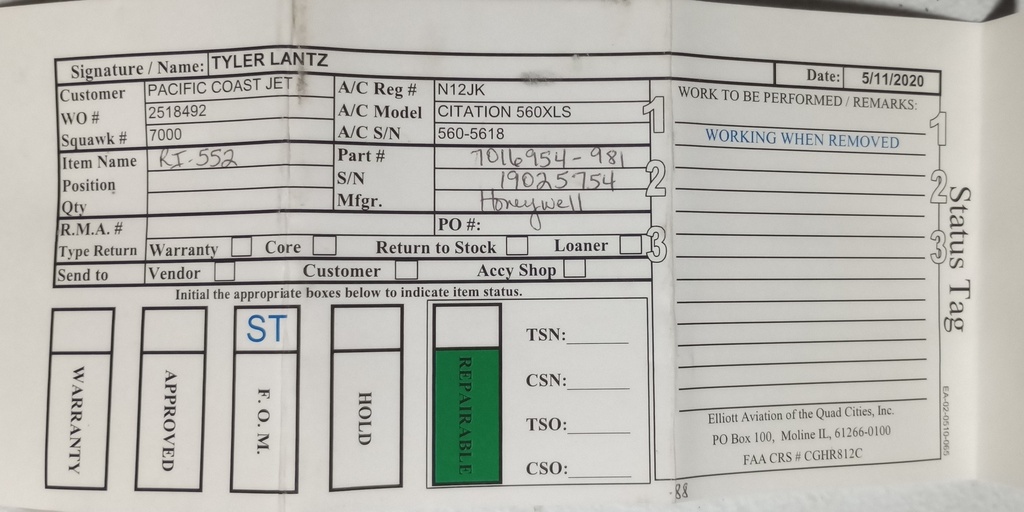 Signature / Name: TYLER LANTZ
Date: 5/11/2020
Customer PACIFIC COAST JET A/C Reg # N12JK
WO # 2518492 A/C Model CITATION 560XLS
Squawk # 7000 A/C S/N 560-5618
1
Item Name RI-552 Part # 7016954-981
Position S/N 19025754
Qty Mfgr. Honeywell
2
R.M.A. # PO #:
Type Return Warranty Core Return to Stock Loaner
3
Send to Vendor Customer Accy Shop
Initial the appropriate boxes below to indicate item status.
WARRANTY
APPROVED
ST
F. O. M.
HOLD
REPAIRABLE
TSN:
CSN:
TSO:
CSO:
WORK TO BE PERFORMED / REMARKS:
WORKING WHEN REMOVED
Elliott Aviation of the Quad Cities, Inc.
PO Box 100, Moline IL, 61266-0100
FAA CRS # CGHR812C
1
2
3
Status Tag
EA-02-0510-065
-88